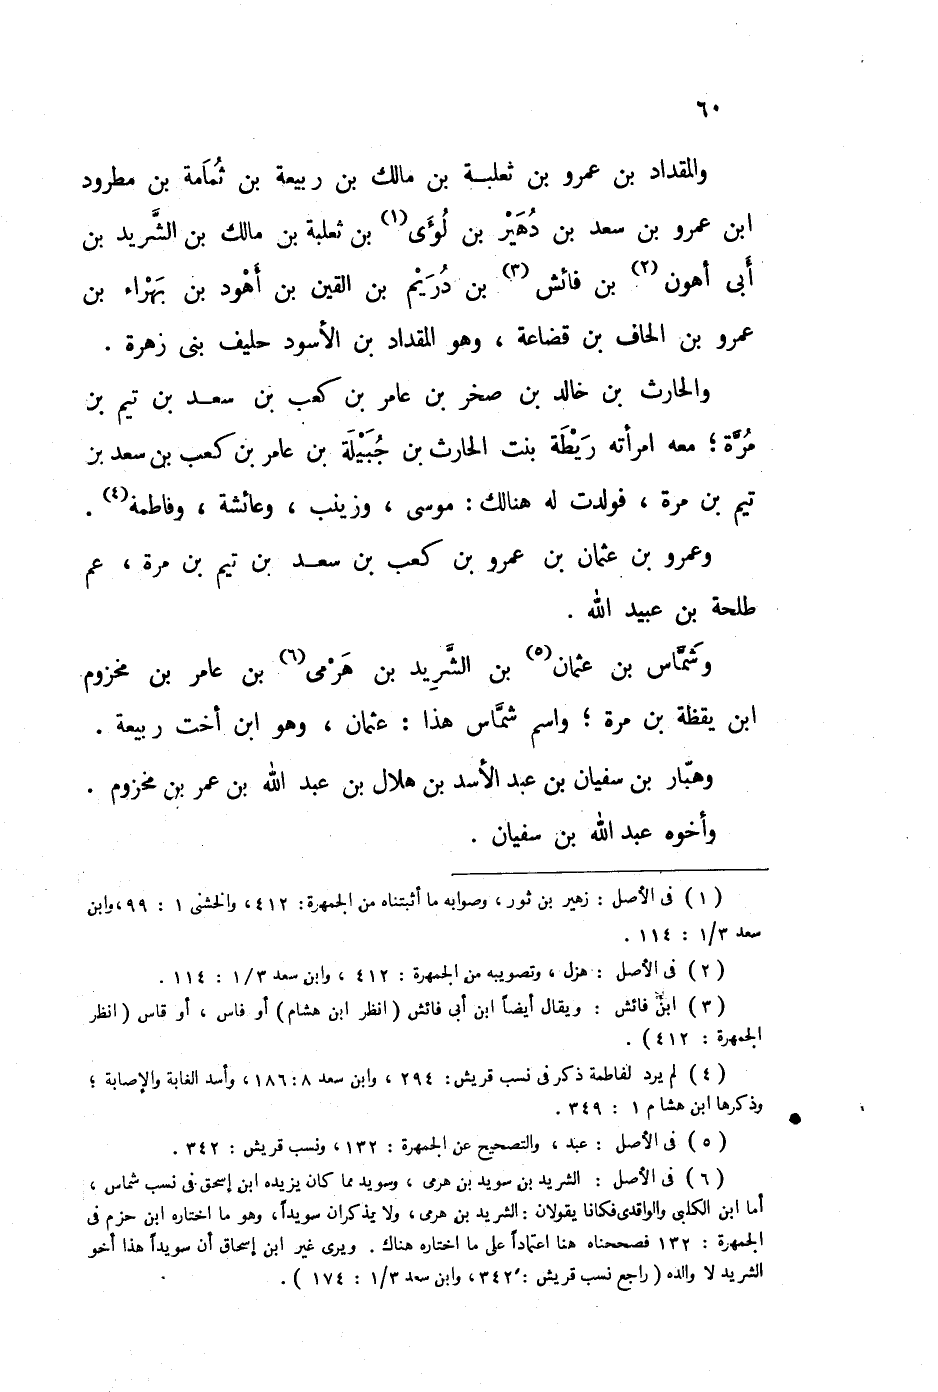 ٦٠
والمقداد بن عمرو بن ثعلبــة بن مالك بن ربيعة بن ثُمَامة بن مطرود
ابن عمرو بن سعد بن دُهَيْر بن لُوَّى(١) بن ثعلبة بن مالك بن الشَّريد بن
أَبى أهون(٢) بن فائش(٣) بن دُرَيْم بن القين بن أَهْود بن بَهْراء بن
عمرو بن الحاف بن قضاعة ، وهو المقداد بن الأسود حليف بنى زهرة .
والحارث بن خالد بن صخر بن عامر بن كعب بن سعــد بن تيم بن
مُرَّة ؛ معه امرأته رَيْطَة بنت الحارث بن جُبَيْلَة بن عامر بن كعب بن سعد بن
تيم بن مرة ، فولدت له هنالك : موسى ، وزينب ، وعائشة ، وفاطمة(٤) .
وعمرو بن عثمان بن عمرو بن كعب بن سعــد بن تيم بن مرة ، عم
طلحة بن عبيد الله .
وشَمَّاس بن عثمان(٥) بن الشَّرِيد بن هَرْمى(٦) بن عامر بن مخزوم
ابن يقظة بن مرة ؛ واسم شمَّاس هذا : عثمان ، وهو ابن أخت ربيعة .
وهبّار بن سفيان بن عبد الأسد بن هلال بن عبد الله بن عمر بن مخزوم .
وأخوه عبد الله بن سفيان .
( ١ ) فى الأصل : زهير بن ثور ، وصوابه ما أثبتناه من الجمهرة : ٤١٢ ، والخشنى ١ : ٩٩ ، وابن
سعد ١/٣ : ١١٤ .
( ٢ ) فى الأصل : هزل ، وتصويبه من الجمهرة : ٤١٢ ، وابن سعد ١/٣ : ١١٤ .
( ٣ ) ابن فائش : ويقال أيضاً ابن أبى فائش ( انظر ابن هشام ) أو فاس ، أو قاس ( انظر
الجمهرة : ٤١٢ ) .
( ٤ ) لم يرد لفاطمة ذكر فى نسب قريش : ٢٩٤ ، وابن سعد ٨ : ١٨٦ ، وأسد الغابة والإصابة ؛
وذكرها ابن هشام ١ : ٣٤٩ .
( ٥ ) فى الأصل : عبد ، والتصحيح عن الجمهرة : ١٣٢ ، ونسب قريش : ٣٤٢ .
( ٦ ) فى الأصل : الشريد بن سويد بن هرمى ، وسويد مما كان يزيده ابن إسحق فى نسب شماس ،
أما ابن الكلبى والواقدى فكانا يقولان : الشريد بن هرمى ، ولا يذكران سويداً ، وهو ما اختاره ابن حزم فى
الجمهرة : ١٣٢ فصححناه هنا اعتماداً على ما اختاره هناك . ويرى غير ابن إسحاق أن سويداً هذا أخو
الشريد لا والده ( راجع نسب قريش : ٣٤٢ ، وابن سعد ١/٣ : ١٧٤ ) .